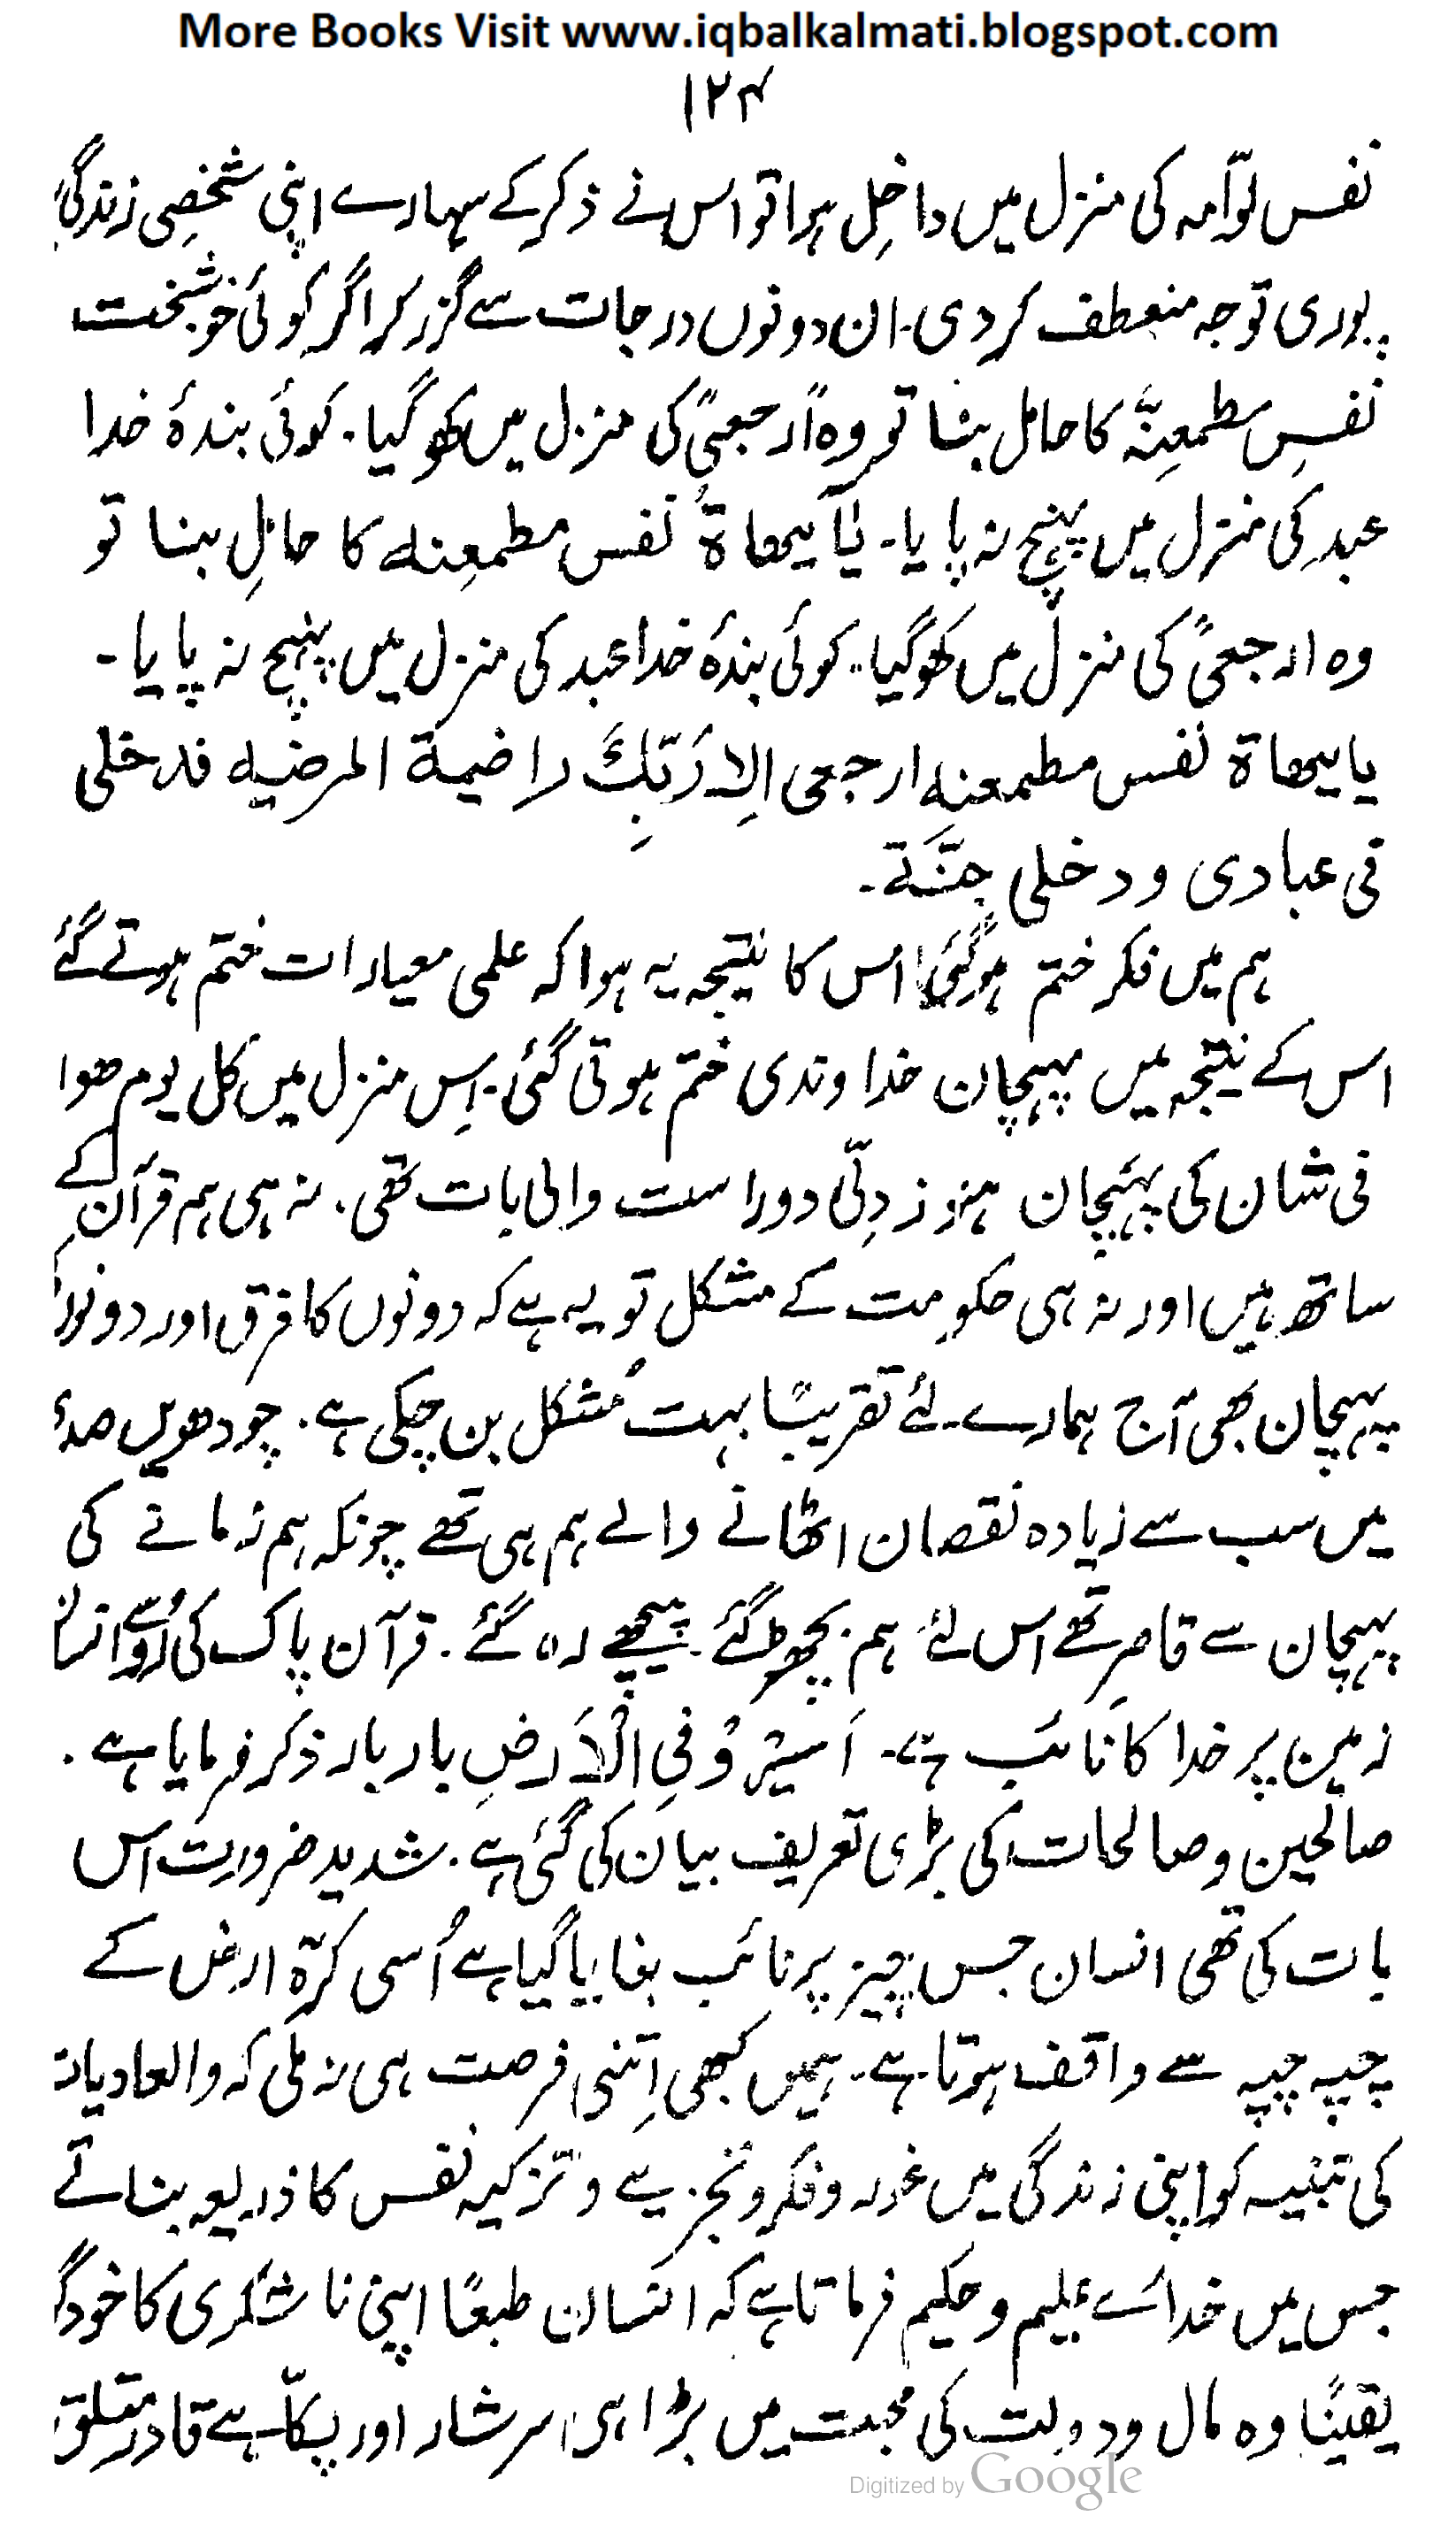 More Books Visit www.iqbalkalmati.blogspot.com
۱۲۴
نفس لوّامہ کی منزل میں داخِل ہوا تو اس نے ذکر کے سہارے اپنی شخصِی زندگی
پوری توجہ منعطف کر دی۔ ان دونوں درجات سے گزر کر اگر کوئی خوشبخت
نفسِ مطمعِنَّہ کا حامل بنا تو وہ ارجعیً کی منزل میں کھو گیا۔ کوئی بندۂ خدا
عبد کی منزل میں پہنچ نہ پایا۔ یٰاَیھاۃُ نفس مطمعِنہ کا حامِل بنا تو
وہ ارجعیً کی منزل میں کھو گیا۔ کوئی بندۂ خدا عبد کی منزل میں پہنچ نہ پایا۔
یایھاۃ نفس مطمعنہ ارجعی اِلا رَبِّکَ راضیۃ المرضیہ فدخلی
فی عبادی ودخلی جنَّۃ۔
ہم میں فکر ختم ہو گئی اس کا نتیجہ یہ ہوا کہ علمی معیارات ختم ہوتے گئے
اس کے نتیجہ میں پہچان خداوندی ختم ہوتی گئی۔ اِس منزل میں کل یوم ھوا
فی شان کی پہچان ہنوز دِلّی دور است والی بات تھی۔ نہ ہی ہم قرآن کے
ساتھ ہیں اور نہ ہی حکومت کے مشکل تو یہ ہے کہ دونوں کا فرق اور دونوں
پہچان بھی آج ہمارے لئے تقریبًا بہت مُشکل بن چکی ہے۔ چودھویں
میں سب سے زیادہ نقصان اٹھانے والے ہم ہی تھے چونکہ ہم زمانے کی
پہچان سے قاصر تھے اس لئے ہم بچھڑ گئے۔ پیچھے رہ گئے۔ قرآن پاک کی رُو سے
زمین پر خدا کا نائب ہے۔ اَسیرُوْ فیِ الْاَرضِ بار بار ذکر فرمایا ہے۔
صالحین و صالحات کی بڑی تعریف بیان کی گئی ہے۔ شدید ضرورت اس
بات کی تھی انسان جس چیز پر نائب بنایا گیا ہے اُسی کرّہ ارض کے
چپہ چپہ سے واقف ہوتا ہے۔ ہمیں کبھی اِتنی فرصت ہی نہ ملی کہ والعادیات
کی تنبیہ کو اپنی زندگی میں غور و فکر و تجزیے و تزکیہ نفس کا ذریعہ بناتے
جس میں خدائے علیم و حکیم فرماتا ہے کہ انسان طبعًا اپنی ناشُکری کا خود
یقینًا وہ مال و دولت کی محبت میں بڑا ہی سرشار اور پکّا ہے قادر
Digitized by Google